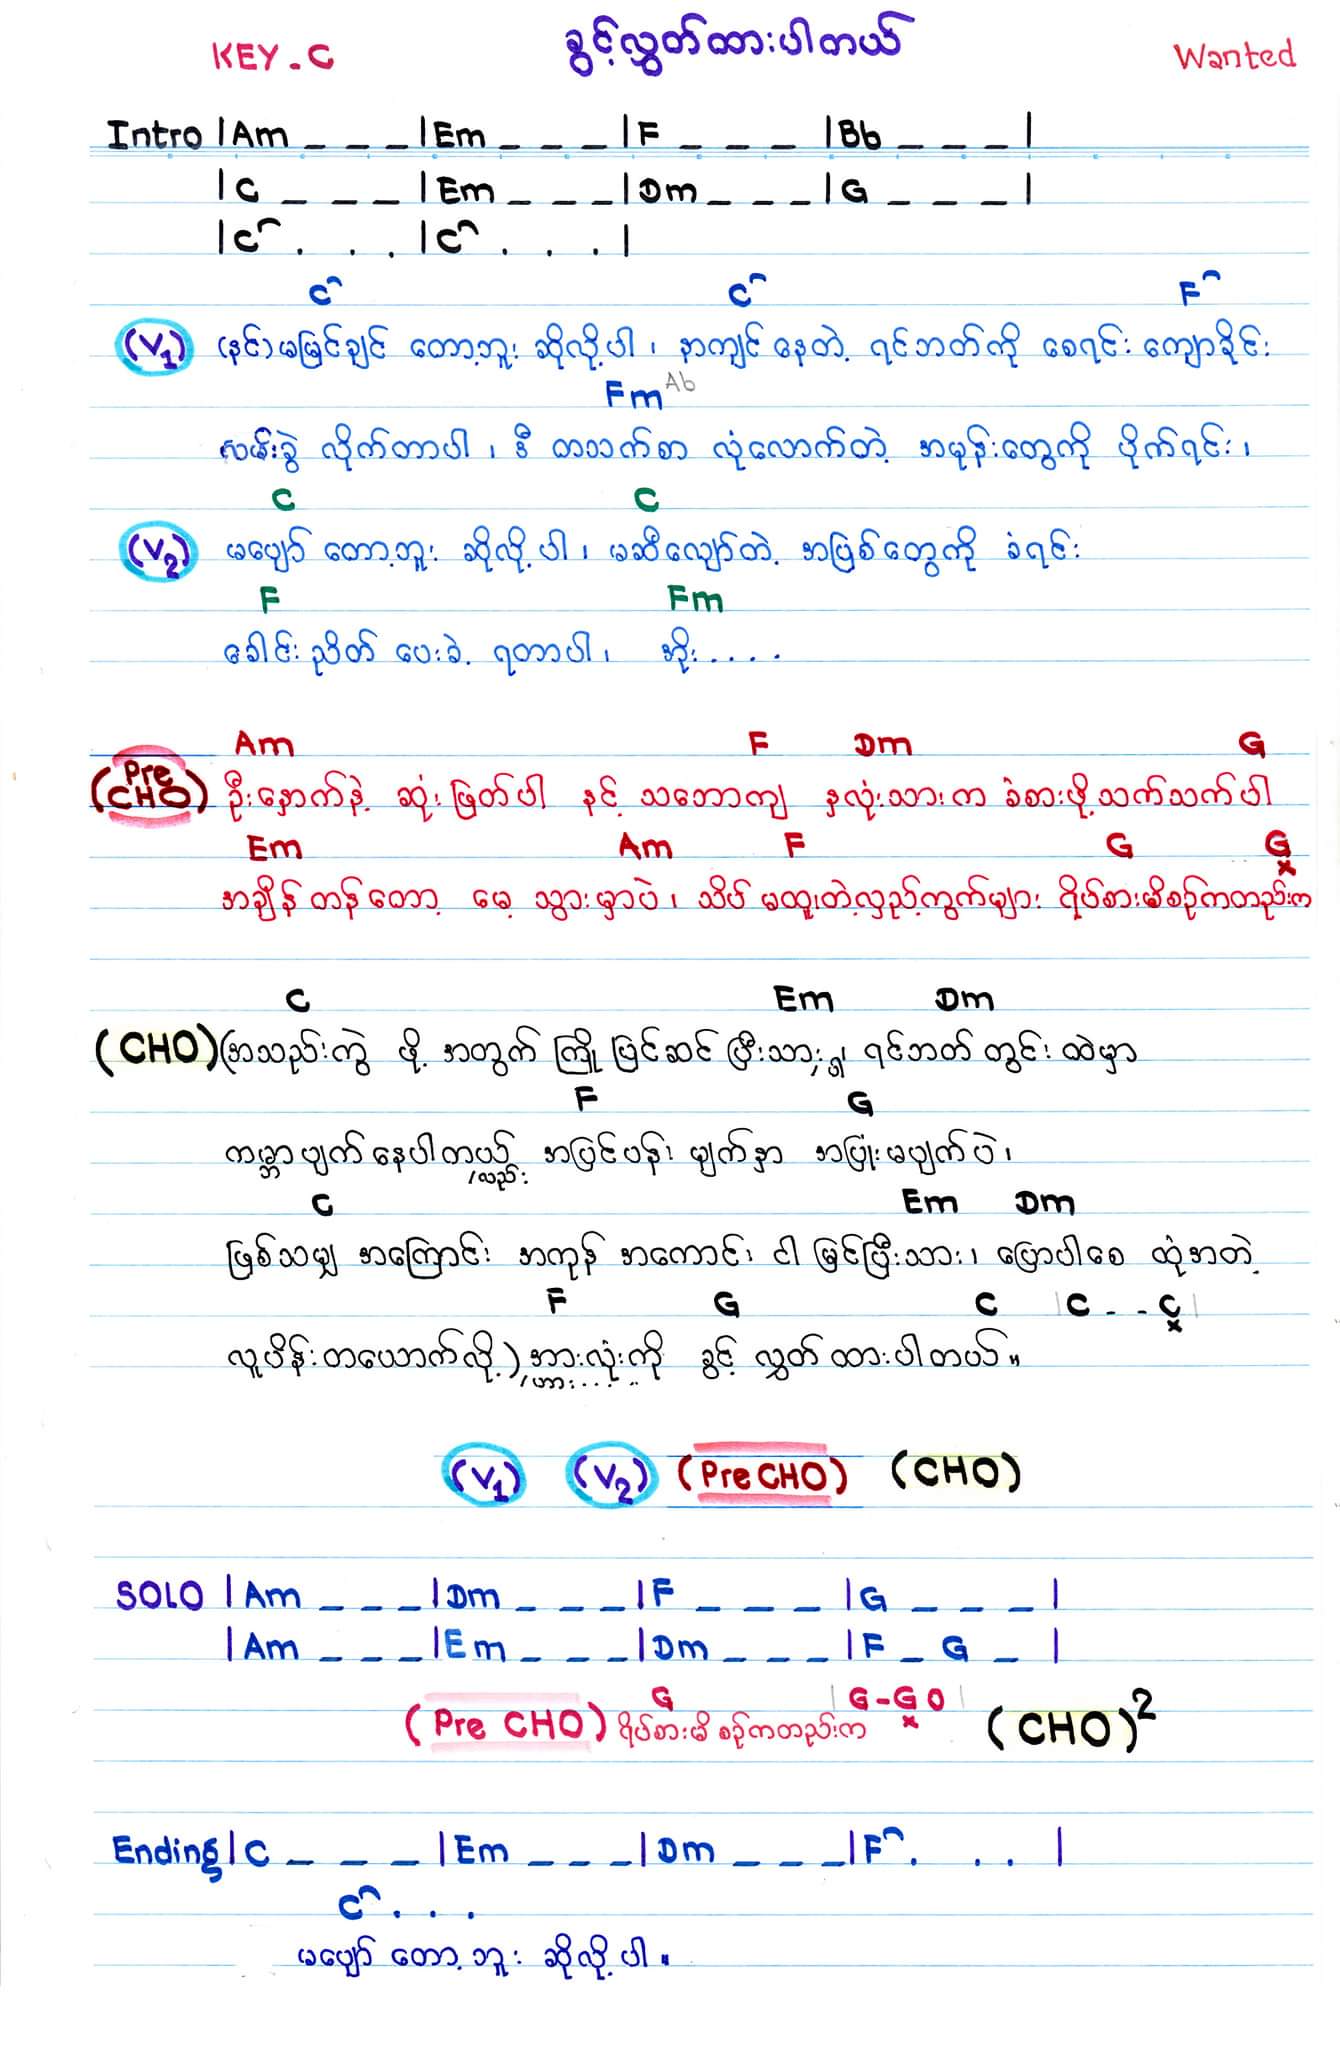 KEY - C ခွင့်လွှတ်ထားပါတယ် Wanted
Intro |Am _ _ _ |Em _ _ _ |F _ _ _ |Bb _ _ _ |
|C _ _ _ |Em _ _ _ |Dm _ _ _ |G _ _ _ |
|C⌒ . . . |C⌒ . . . |
C⌒ C⌒ F⌒
(V1) (နင်)မမြင်ချင် တော့ဘူး ဆိုလို့ပါ ၊ နာကျင်နေတဲ့ ရင်ဘတ်ကို စေ့ရင်း ကျောခိုင်း
Fm Ab
လမ်းခွဲ လိုက်တာပါ ၊ ဒီ တသက်စာ လုံလောက်တဲ့ အမုန်းတွေကို ပိုက်ရင်း ၊
C C
(V2) မပျော် တော့ဘူး ဆိုလို့ပါ ၊ မဆီလျော်တဲ့ အဖြစ်တွေကို ခံရင်း
F Fm
ခေါင်းညိတ် ပေးခဲ့ ရတာပါ ၊ အိုး ....
Am F Dm G
(Pre CHO) ဦးနှောက်နဲ့ ဆုံးဖြတ်ပါ နင့် သဘောကျ နှလုံးသားက ခံစားဖို့သက်သက်ပါ
Em Am F G G x
အချိန်တန်တော့ မေ့ သွားမှာပဲ ၊ သိပ် မထူးတဲ့လှည့်ကွက်များ ရိပ်စားမိစဉ်ကတည်းက
C Em Dm
(CHO) (အသည်းကွဲ ဖို့ အတွက် ကြို ပြင်ဆင် ပြီးသား ၊ ရင်ဘတ် တွင်း ထဲမှာ
F G
ကမ္ဘာပျက်နေပါတယ် အပြင်ပန်း မျက်နှာ အပြုံးမပျက်ပဲ ၊
လည်း
C Em Dm
ဖြစ်သမျှ အကြောင်း အကုန် အကောင်း ငါ မြင်ပြီးသား ၊ ပြောပါစေ ထုံအတဲ့
F G C |C - - C x|
လူပိန်းတယောက်လို့) အားလုံးကို ခွင့် လွှတ် ထားပါတယ် ။
(V1) (V2) (Pre CHO) (CHO)
SOLO |Am _ _ _ |Dm _ _ _ |F _ _ _ |G _ _ _ |
|Am _ _ _ |Em _ _ _ |Dm _ _ _ |F _ G _ |
G |G - G x 0|
(Pre CHO) ရိပ်စားမိ စဉ်ကတည်းက (CHO)²
Ending |C _ _ _ |Em _ _ _ |Dm _ _ _ |F⌒ . . . |
C⌒ . . .
မပျော် တော့ဘူး ဆိုလို့ပါ ။